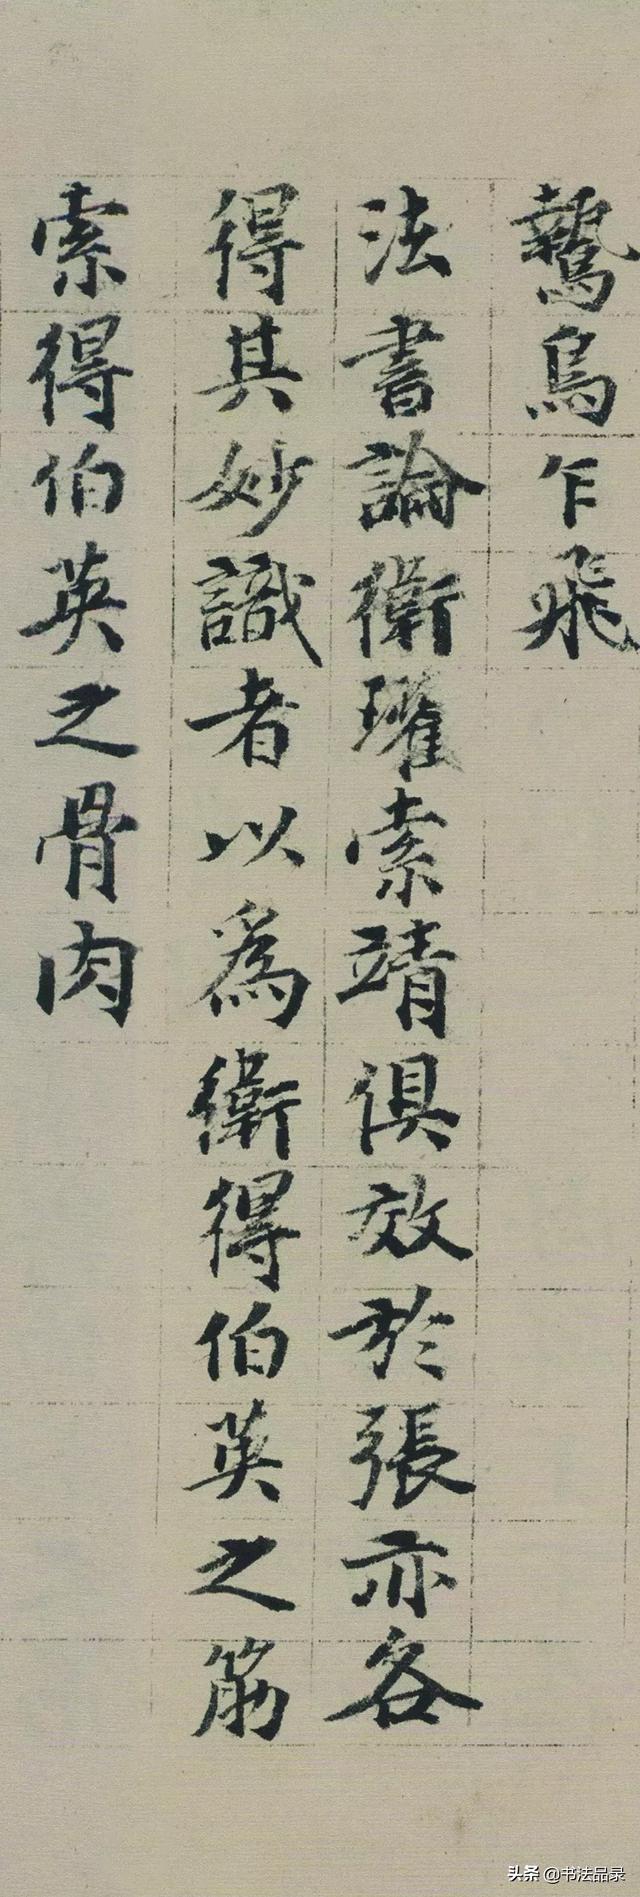 鷙鳥乍飛
法書論衛瓘索靖俱效於張亦各
得其妙識者以為衛得伯英之筋
索得伯英之骨肉
头条 @书法品录